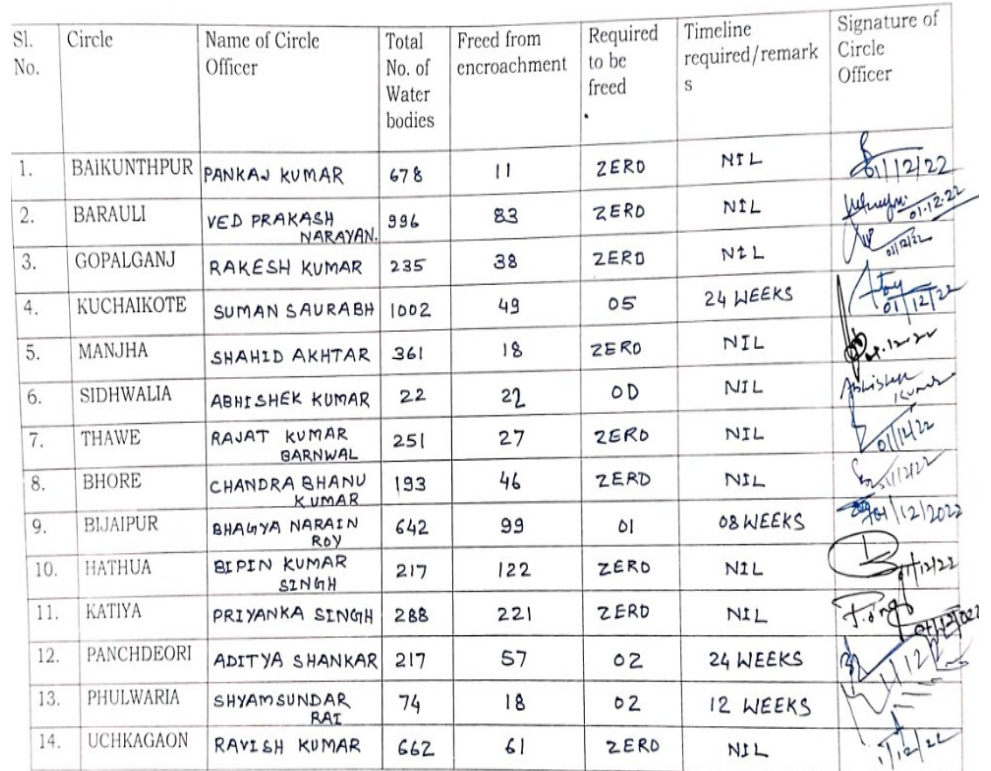 Sl. No. Circle Name of Circle Officer Total No. of Water bodies Freed from encroachment Required to be freed Timeline required/remarks Signature of Circle Officer
1. BAIKUNTHPUR PANKAJ KUMAR 678 11 ZERO NIL 01/12/22
2. BARAULI VED PRAKASH NARAYAN. 996 83 ZERO NIL 01.12.22
3. GOPALGANJ RAKESH KUMAR 235 38 ZERO NIL 01/12/22
4. KUCHAIKOTE SUMAN SAURABH 1002 49 05 24 WEEKS 01/12/22
5. MANJHA SHAHID AKHTAR 361 18 ZERO NIL
6. SIDHWALIA ABHISHEK KUMAR 22 22 00 NIL Abhishek Kumar
7. THAWE RAJAT KUMAR BARNWAL 251 27 ZERO NIL 01/12/22
8. BHORE CHANDRA BHANU KUMAR 193 46 ZERO NIL
9. BIJAIPUR BHAGYA NARAIN ROY 642 99 01 08 WEEKS 01/12/2022
10. HATHUA BIPIN KUMAR SINGH 217 122 ZERO NIL
11. KATIYA PRIYANKA SINGH 288 221 ZERO NIL
12. PANCHDEORI ADITYA SHANKAR 217 57 02 24 WEEKS
13. PHULWARIA SHYAMSUNDAR RAI 74 18 02 12 WEEKS
14. UCHKAGAON RAVISH KUMAR 662 61 ZERO NIL 1/12/22